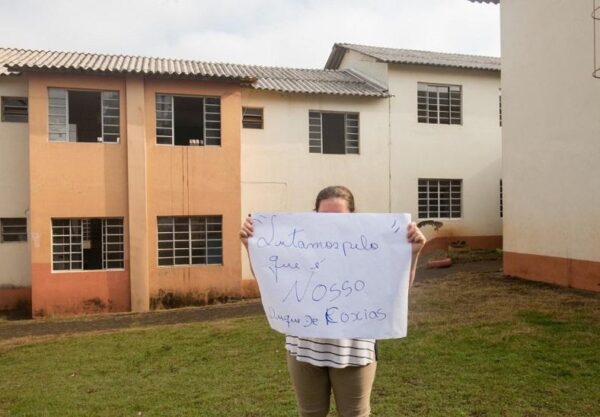 "Lutamos pelo
que é
NOSSO
Duque De Caxias"